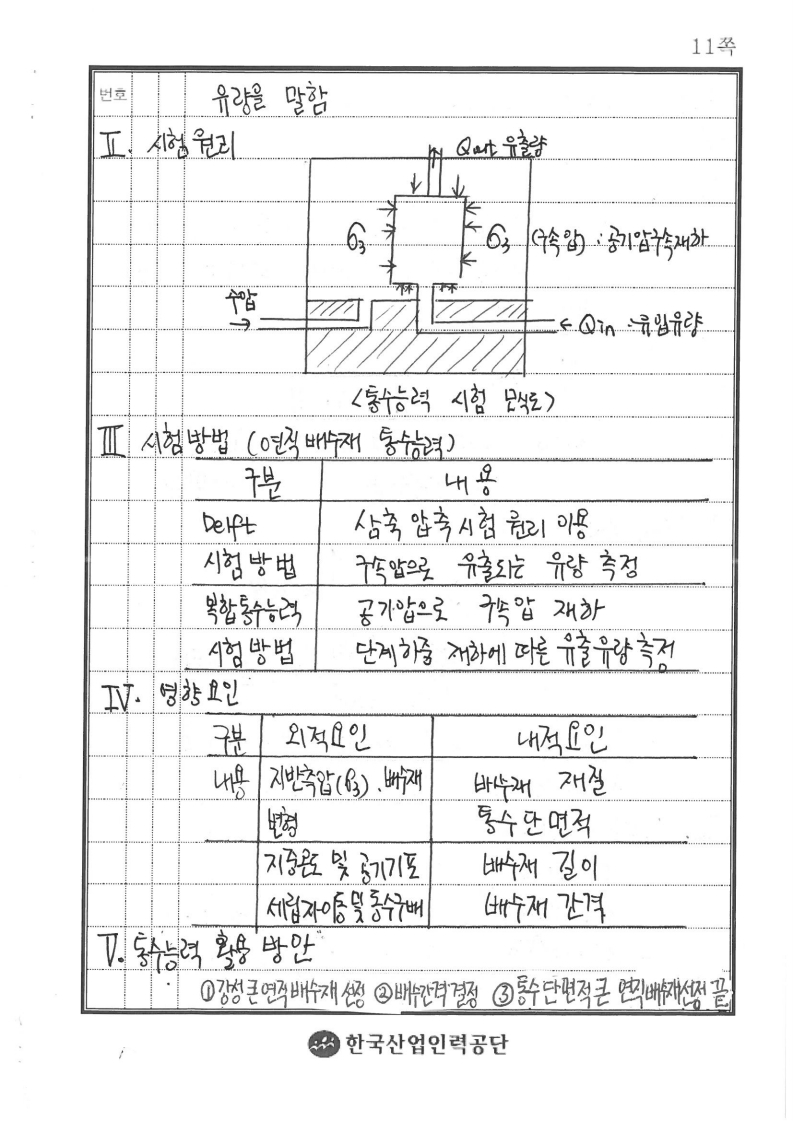 11쪽
번호
유량을 말함
Ⅱ. 시험원리
Qout 유출량
σ3 σ3 (구속압) : 공기압구속재하
수압
→
← Qin : 유입유량
<통수능력 시험 모식도>
Ⅲ 시험방법 (연직배수재 통수능력)
구분 내용
Delft 삼축압축시험 원리 이용
시험방법 구속압으로 유출되는 유량 측정
복합통수능력 공기압으로 구속압 재하
시험방법 단계하중 재하에 따른 유출유량측정
Ⅳ. 영향요인
구분 외적요인 내적요인
내용 지반측압(σ3), 배수재 배수재 재질
변형 통수단면적
지중온도 및 공기기포 배수재 길이
세립자이동및통수구배 배수재 간격
Ⅴ. 통수능력 활용 방안
①강성큰연직배수재선정 ②배수간격결정 ③통수단면적큰 연직배수재선정. 끝
한국산업인력공단